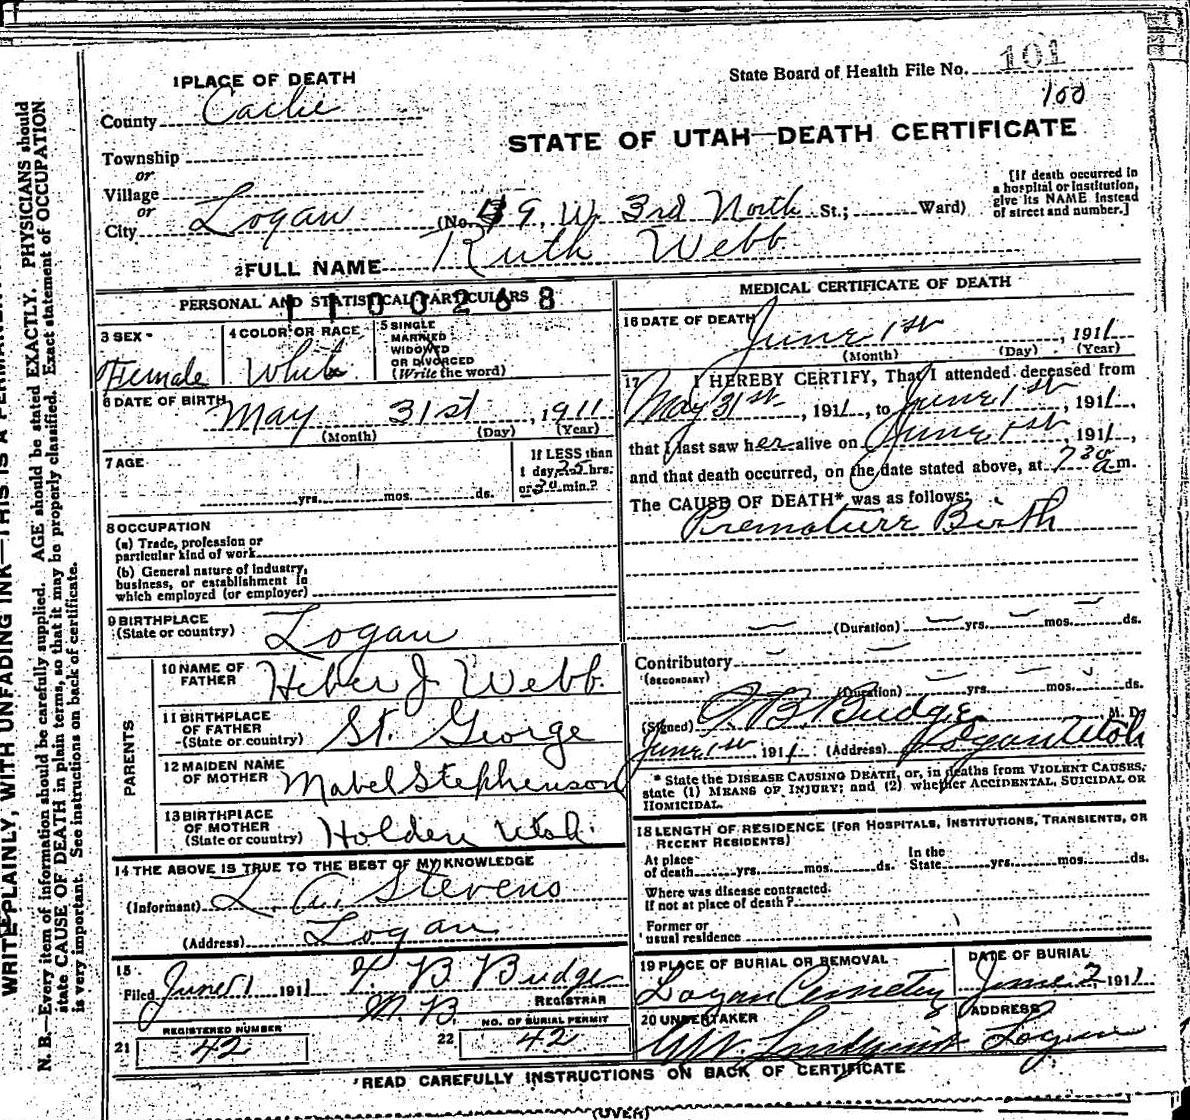 101
State Board of Health File No.
100
STATE OF UTAH—DEATH CERTIFICATE
1 PLACE OF DEATH
County Cache
Township
or
Village
or
City Logan (No. 39 W. 3rd North St.; Ward)
[If death occurred in
a hospital or institution,
give its NAME instead
of street and number.]
2 FULL NAME Ruth Webb
PERSONAL AND STATISTICAL PARTICULARS
1100268
3 SEX
Female
4 COLOR OR RACE
White
5 SINGLE
MARRIED
WIDOWED
OR DIVORCED
(Write the word)
6 DATE OF BIRTH
May 31st, 1911
(Month) (Day) (Year)
7 AGE
yrs. mos. ds.
If LESS than
1 day, 25 hrs.
or 30 min.?
8 OCCUPATION
(a) Trade, profession or
particular kind of work
(b) General nature of industry,
business, or establishment in
which employed (or employer)
9 BIRTHPLACE
(State or country) Logan
PARENTS
10 NAME OF
FATHER Heber J Webb
11 BIRTHPLACE
OF FATHER
(State or country) St. George
12 MAIDEN NAME
OF MOTHER Mabel Stephenson
13 BIRTHPLACE
OF MOTHER
(State or country) Holden Utah
14 THE ABOVE IS TRUE TO THE BEST OF MY KNOWLEDGE
(Informant) L. A. Stevens
(Address) Logan
15
Filed June 1 1911 T B Budge
M. D. REGISTRAR
REGISTERED NUMBER
21 42
NO. OF BURIAL PERMIT
22 42
MEDICAL CERTIFICATE OF DEATH
16 DATE OF DEATH
June 1st, 1911
(Month) (Day) (Year)
17 I HEREBY CERTIFY, That I attended deceased from
May 31st, 1911, to June 1st, 1911,
that I last saw her alive on June 1st, 1911,
and that death occurred, on the date stated above, at 7 30 a m.
The CAUSE OF DEATH* was as follows:
Premature Birth
(Duration) yrs. mos. ds.
Contributory
(SECONDARY)
(Duration) yrs. mos. ds.
(Signed) T B Budge M. D.
June 1st 1911 (Address) Logan Utah
* State the DISEASE CAUSING DEATH, or, in deaths from VIOLENT CAUSES,
state (1) MEANS OF INJURY; and (2) whether ACCIDENTAL, SUICIDAL OR
HOMICIDAL.
18 LENGTH OF RESIDENCE (FOR HOSPITALS, INSTITUTIONS, TRANSIENTS, OR
RECENT RESIDENTS)
At place
of death yrs. mos. ds. In the
State yrs. mos. ds.
Where was disease contracted.
If not at place of death?
Former or
usual residence
19 PLACE OF BURIAL OR REMOVAL
Logan Cemetery
DATE OF BURIAL
June 2 1911
20 UNDERTAKER
Lindquist
ADDRESS
Logan
READ CAREFULLY INSTRUCTIONS ON BACK OF CERTIFICATE
(OVER)
WRITE PLAINLY, WITH UNFADING INK—THIS IS A PERMANENT
N. B.—Every item of information should be carefully supplied. AGE should be stated EXACTLY. PHYSICIANS should
state CAUSE OF DEATH in plain terms, so that it may be properly classified. Exact statement of OCCUPATION
is very important. See instructions on back of certificate.